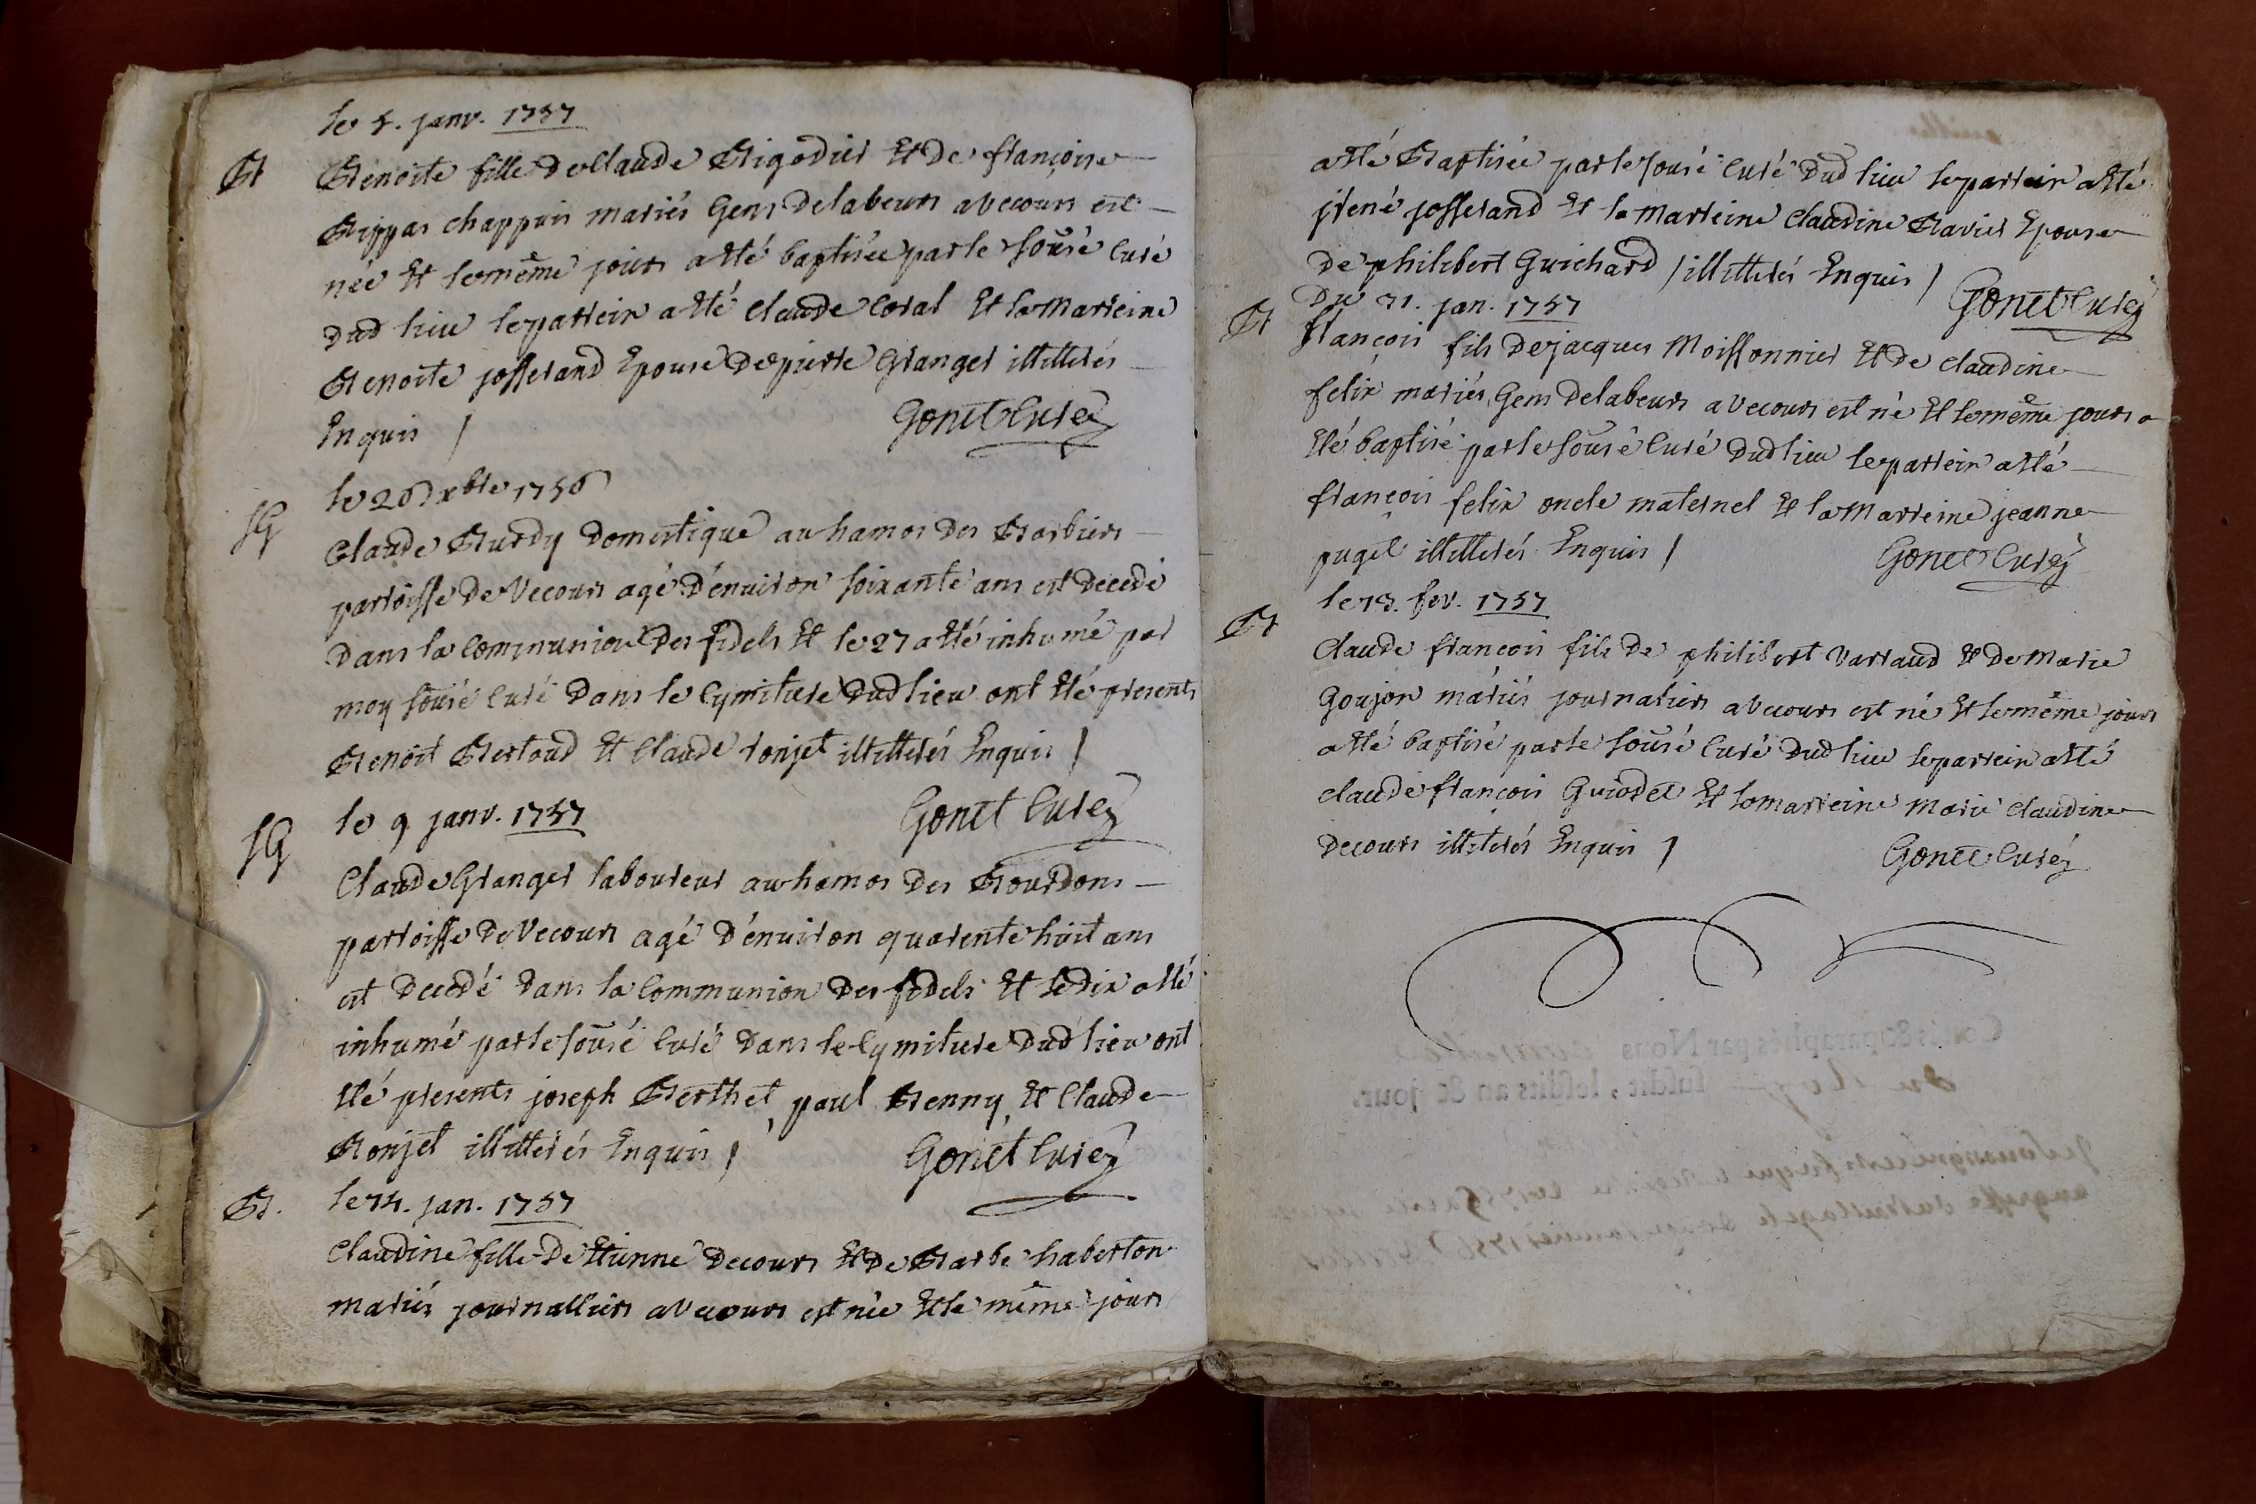 le 5. janv. 1757
Bt Benoite fille de Claude Bigodier Et de françoise
Bippas chappuis mariés Gens de labeurs a vecours est
née Et le même jours a Eté baptisée par le sousé Curé
dud lieu le parrein a Eté Claude Coral Et la Marreine
Benoite josserand Epouse de pierre Granger illitterés
Enquis / Gonet Curé
le 26 Xbre 1756
SG Claude Burdy domestique au hamos des Barbiers
parroisse de Vecours agé d'environ soixante ans est decedé
dans la Communion des fidels Et le 27 a Eté inhumé par
moy sousé Curé dans le Cymitiere dud lieu ont Eté presents
Benoit Bertoud Et Claude ronjet illitterés Enquis /
Gonet Curé
le 9 janv. 1757
SG Claude Granger laboureur au hamos des Bourdons
parroisse de Vecours agé d'environ quarente huit ans
est decedé dans la Communion des fidels Et le dix a Eté
inhumé par le sousé Curé dans le Cymitiere dud lieu ont
Eté presents joseph Berthet, paul Benny, Et Claude
Ronjet illitterés Enquis / Gonet Curé
Bt. le 14. jan. 1757
Claudine fille de Etienne Decours Et de Barbe haberton
mariés journalliers a vecours est née Et le même jours
a Eté Baptisée par le sousé Curé dud lieu le parrein a Eté
jrené josserand Et la Marreine Claudine Bavier Epouse
de philibert Guichard / illitterés Enquis /
Gonet Curé
Du 31. jan. 1757
Bt françois fils de jacques Moissonnier Et de Claudine
felix mariés, Gens de labeurs a vecours est né Et le même jours a
Eté baptisé par le sousé Curé dud lieu le parrein a Eté
françois felix oncle maternel Et la Marreine jeanne
puget illitterés Enquis / Gonet Curé
le 13. fev. 1757
Bt Claude françois fils de philibert Varraud Et de Marie
Goujon mariés journaliers a vecours est né Et le même jours
a Eté baptisé par le sousé Curé dud lieu le parrein a Eté
Claude françois Guiodet Et la marreine Marie Claudine
Decours illiterés Enquis / Gonet Curé